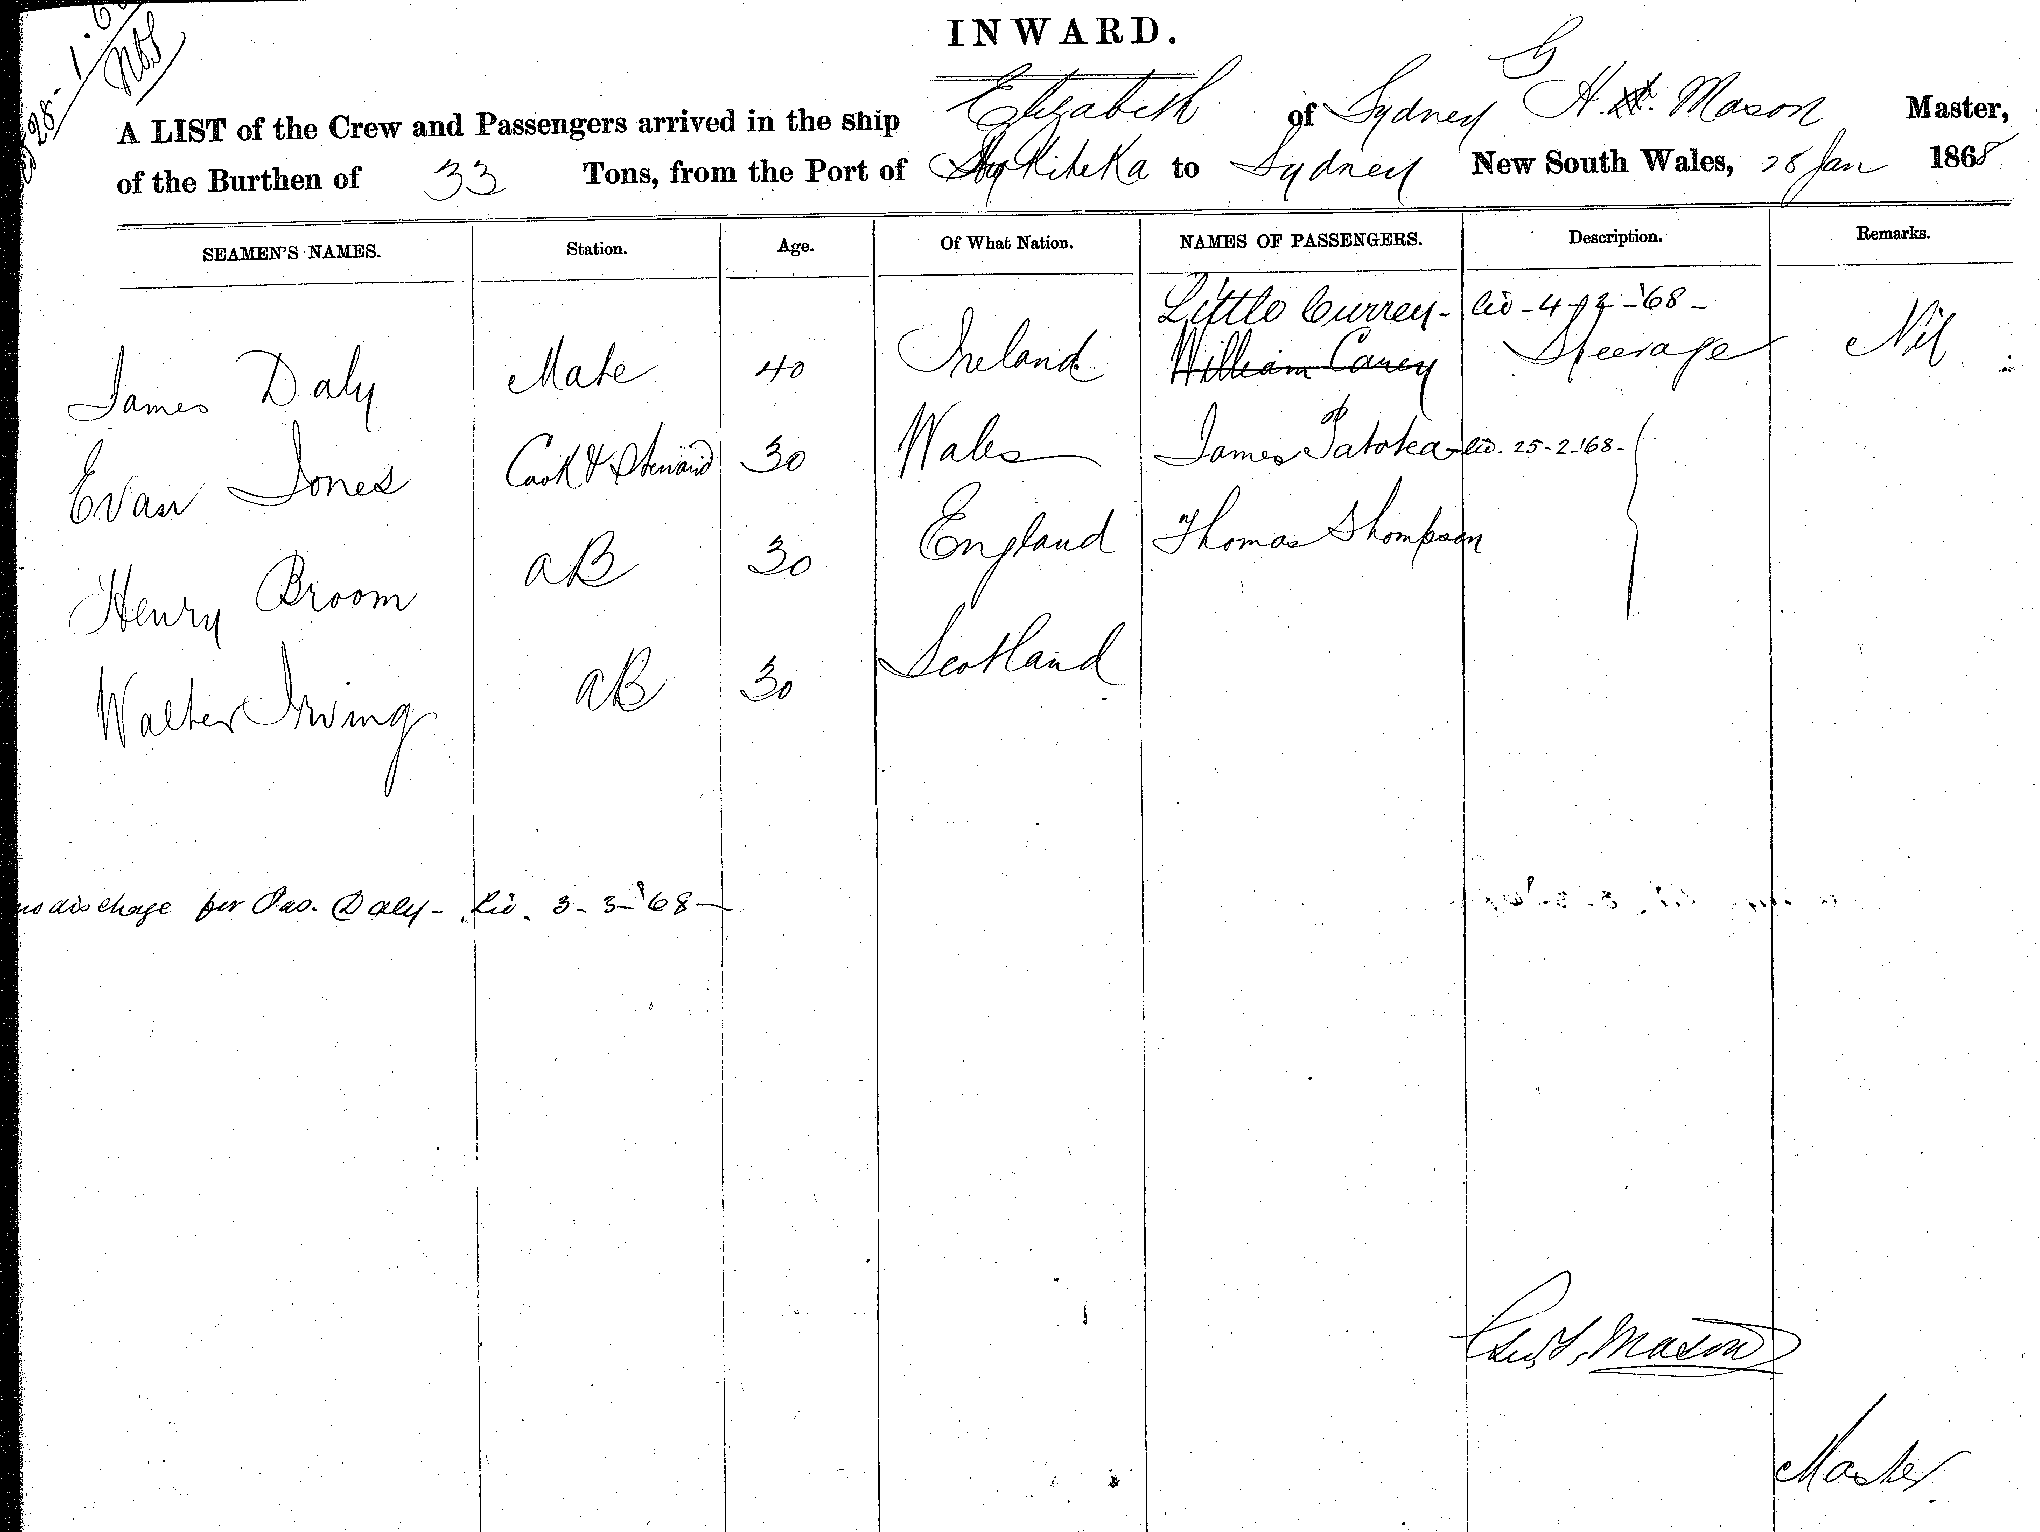 28-1-6
INWARD.
A LIST of the Crew and Passengers arrived in the ship Elizabeth of Sydney G H. Mason Master,
of the Burthen of 33 Tons, from the Port of Hokitika to Sydney New South Wales, 28 Jan 1868
SEAMEN'S NAMES. Station. Age. Of What Nation. NAMES OF PASSENGERS. Description. Remarks.
Little Currey - lid - 4 - 2 - '68 -
James Daly Mate 40 Ireland William Carey Steerage Nil
Evan Jones Cook & Steward 30 Wales James - lid. 25-2-'68-
Henry Broom AB 30 England Thomas Thompson
Walter Irving AB 30 Scotland
discharge for Jas. Daly - lid. 3-3-'68-
Mason
Master